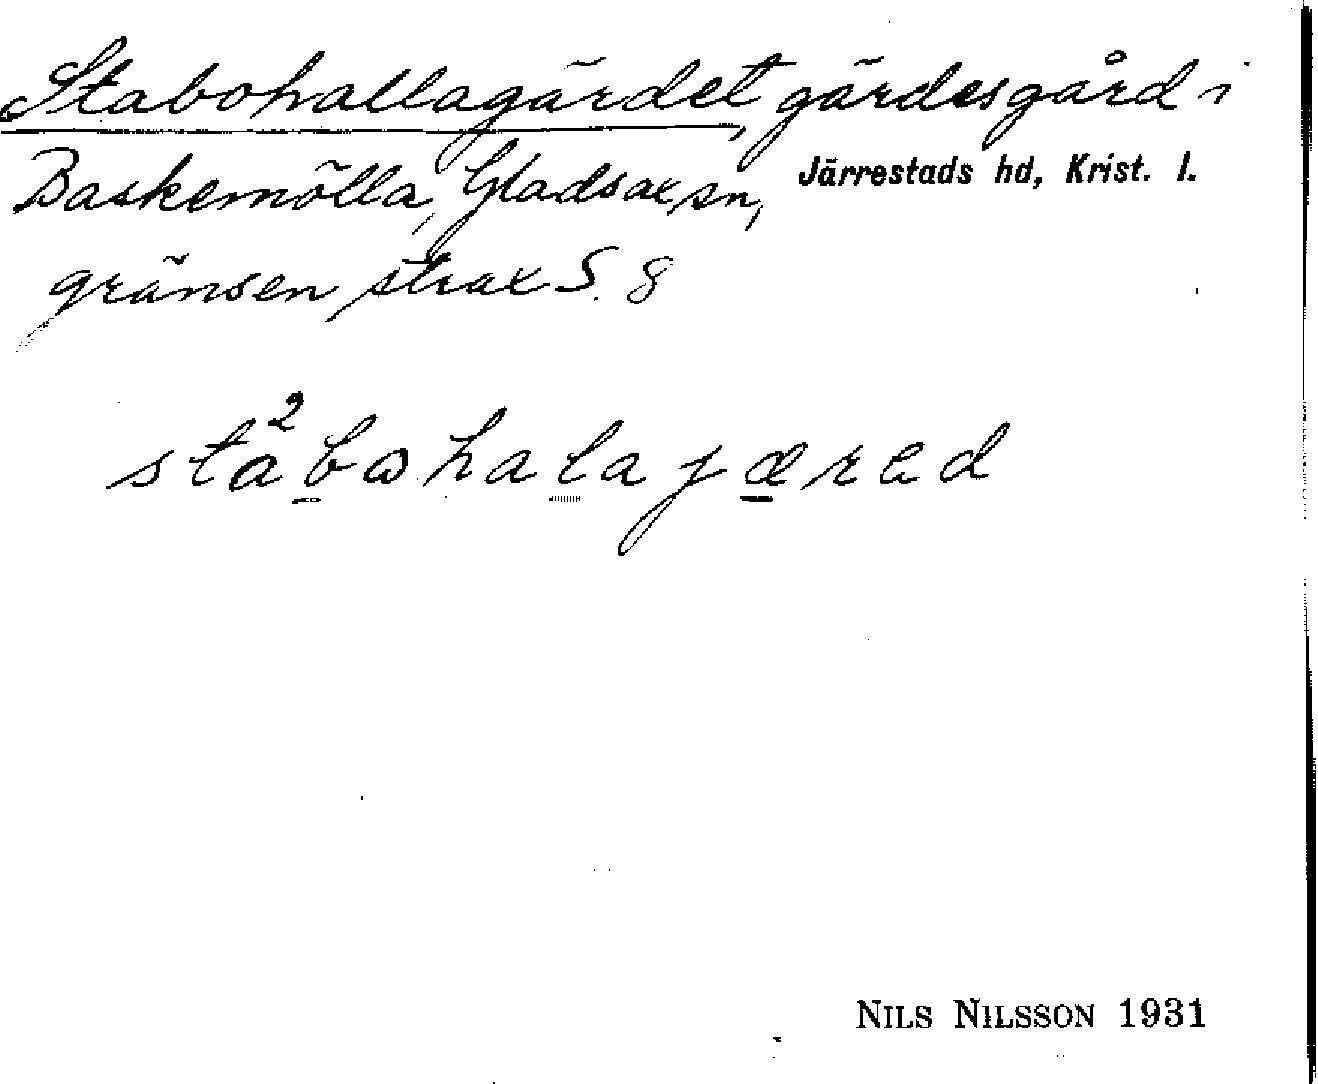 Stabohallagärdet, gärdesgård i
Baskemölla, Gladsax sn, Järrestads hd, Krist. l.
gränsen strax S. 8
sta²bωhalajæred
NILS NILSSON 1931